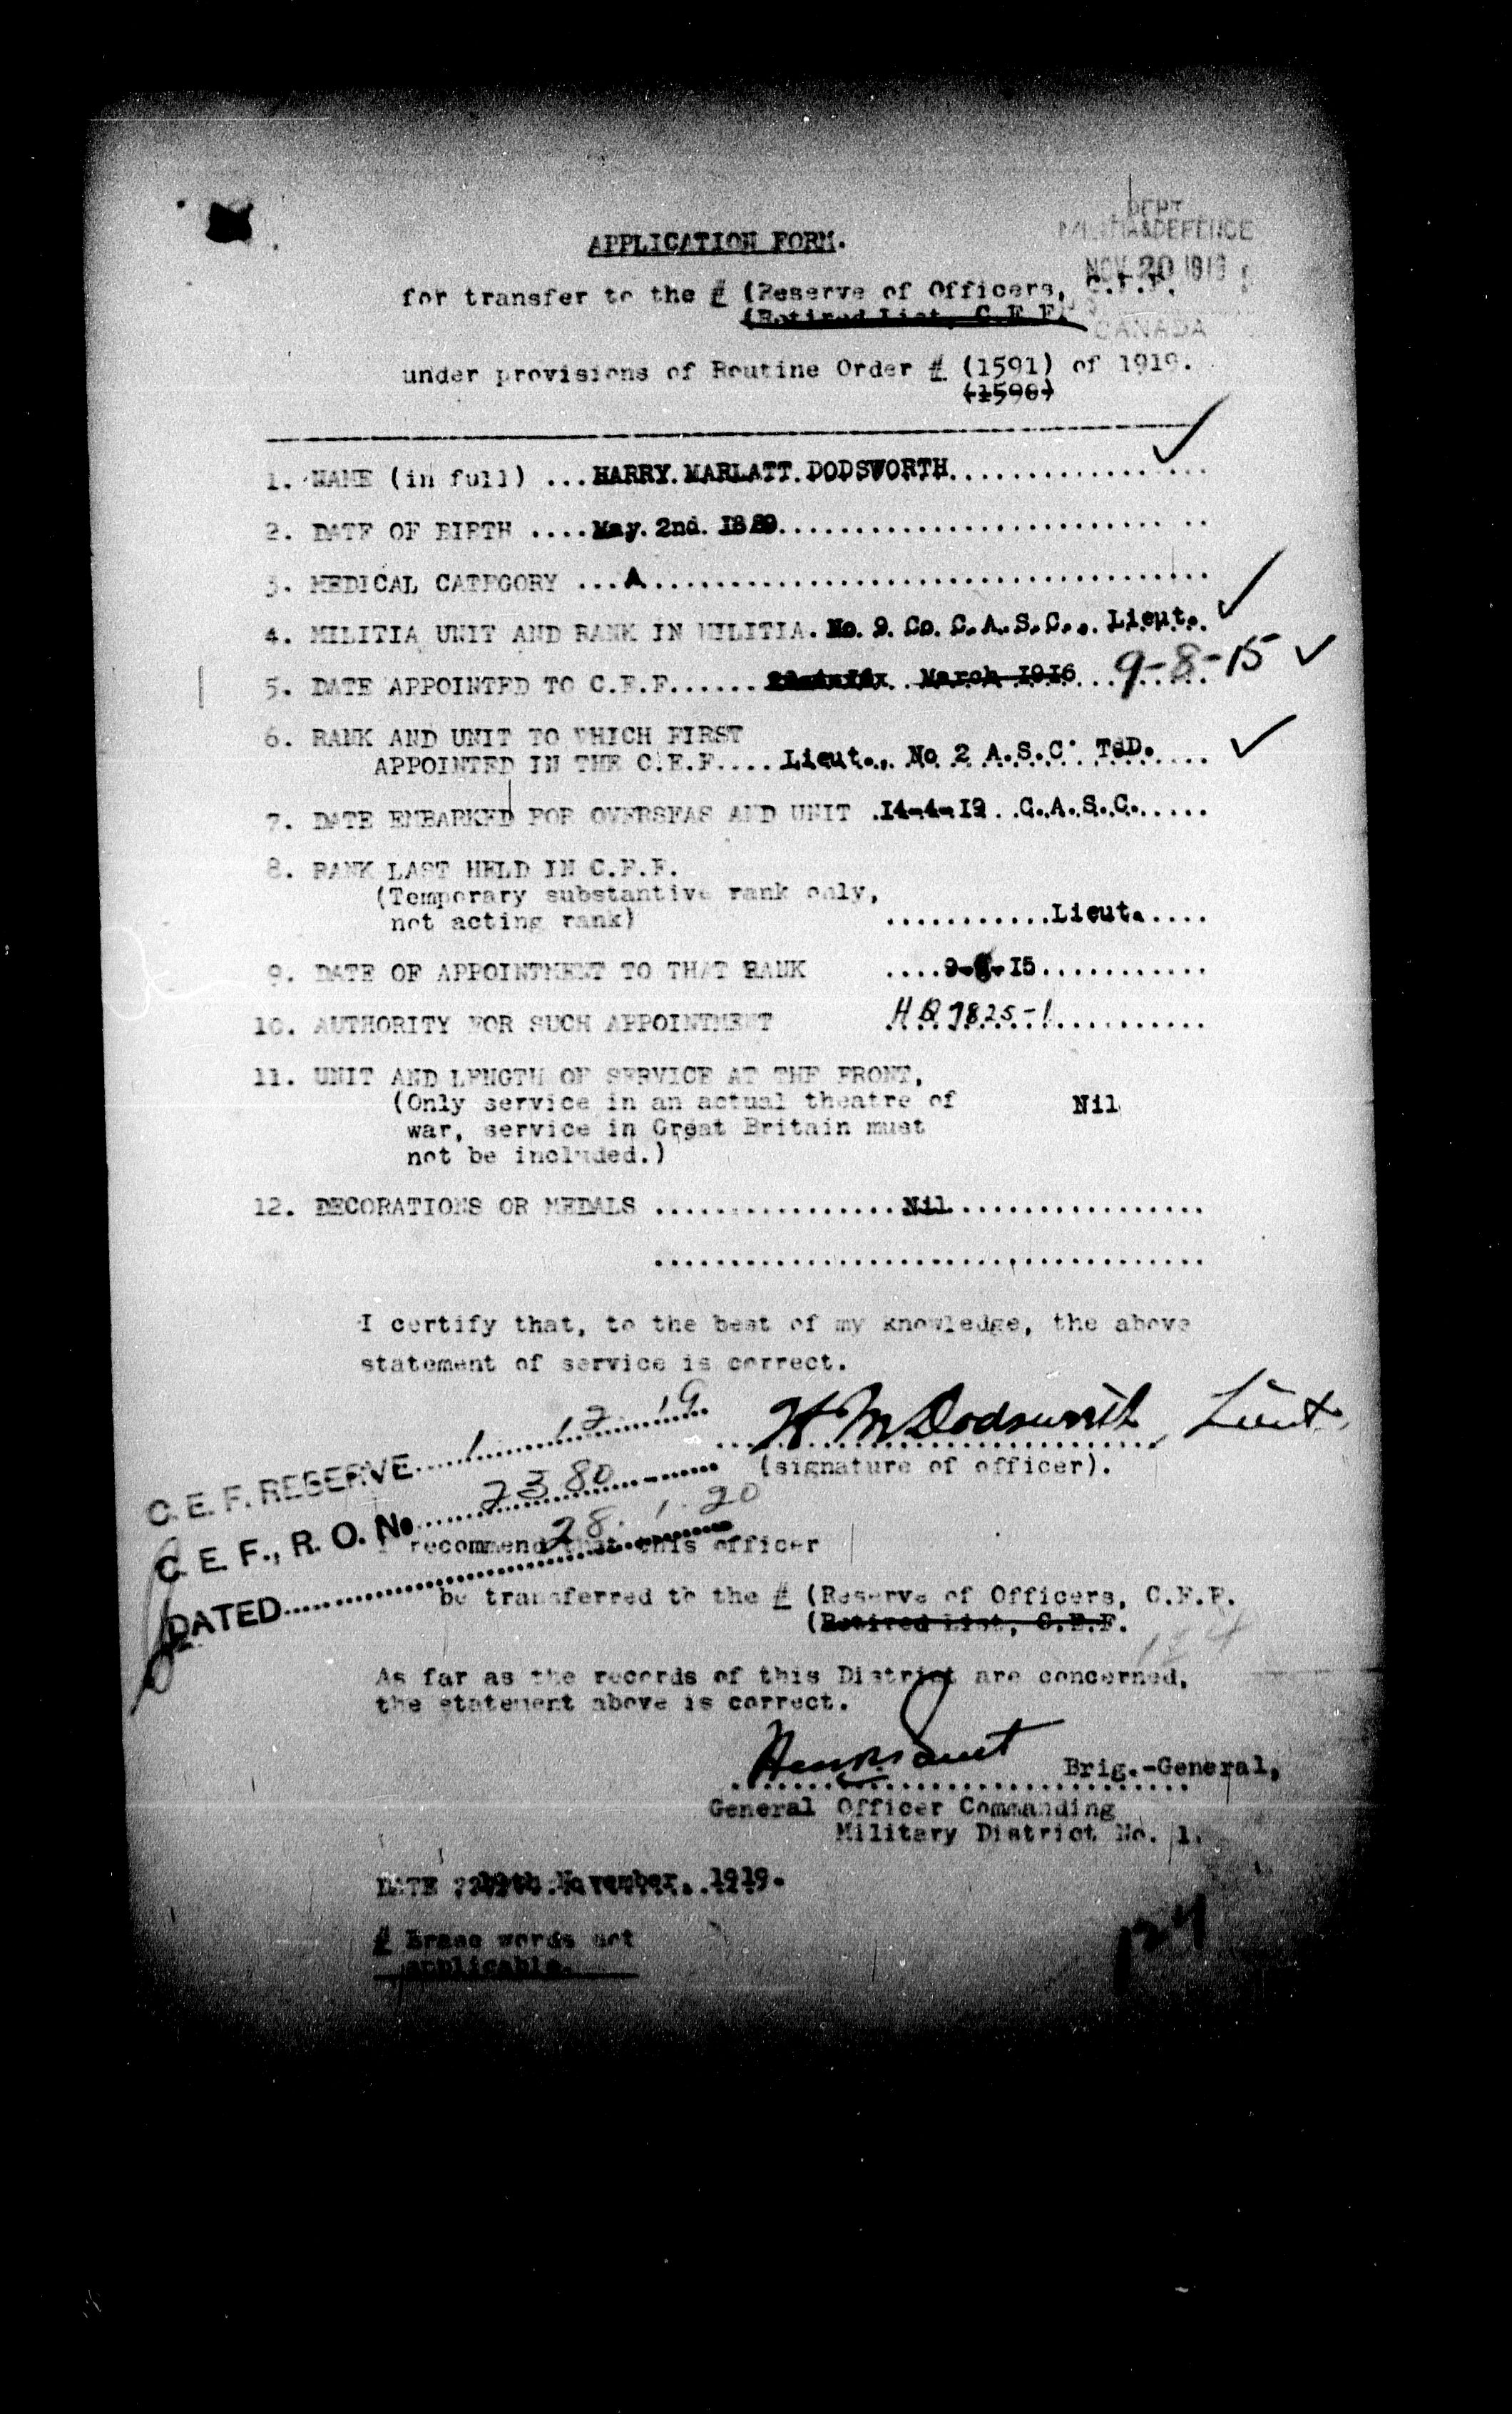 DEPT.
MILITIA & DEFENCE
NOV 20 1919
CANADA
APPLICATION FORM.
for transfer to the # (Reserve of Officers, C.E.F.
(Retired List, C.E.F.
under provisions of Routine Order # (1591) of 1919.
(1590)
1. NAME (in full) ...HARRY. MARLATT. DODSWORTH.................
2. DATE OF BIRTH ....May. 2nd. 1889............................
3. MEDICAL CATEGORY ...A....................................
4. MILITIA UNIT AND RANK IN MILITIA. No. 9. Co. C.A.S.C... Lieut.
5. DATE APPOINTED TO C.E.F...... March 1916 ... 9-8-15
6. RANK AND UNIT TO WHICH FIRST
APPOINTED IN THE C.E.F.... Lieut., No 2 A.S.C. T&D. ....
7. DATE EMBARKED FOR OVERSEAS AND UNIT .14-4-19 ..C.A.S.C.....
8. RANK LAST HELD IN C.E.F.
(Temporary substantive rank only,
not acting rank) ...........Lieut.....
9. DATE OF APPOINTMENT TO THAT RANK ....9-8-15...........
10. AUTHORITY FOR SUCH APPOINTMENT HQ 7825-1
11. UNIT AND LENGTH OF SERVICE AT THE FRONT,
(Only service in an actual theatre of
war, service in Great Britain must
not be included.) Nil
12. DECORATIONS OR MEDALS ................Nil.................
I certify that, to the best of my knowledge, the above
statement of service is correct.
H M Dodsworth, Lieut.
(signature of officer).
C. E. F. RESERVE 1 12 19
C. E. F., R. O. No. 2380
DATED 28. 1. 20
I recommend that this officer
be transferred to the # (Reserve of Officers, C.E.F.
(Retired List, C.E.F.
124
As far as the records of this District are concerned,
the statement above is correct.
Brig.-General,
General Officer Commanding
Military District No. 1.
DATE 19th November. 1919.
# Erase words not
applicable.
124